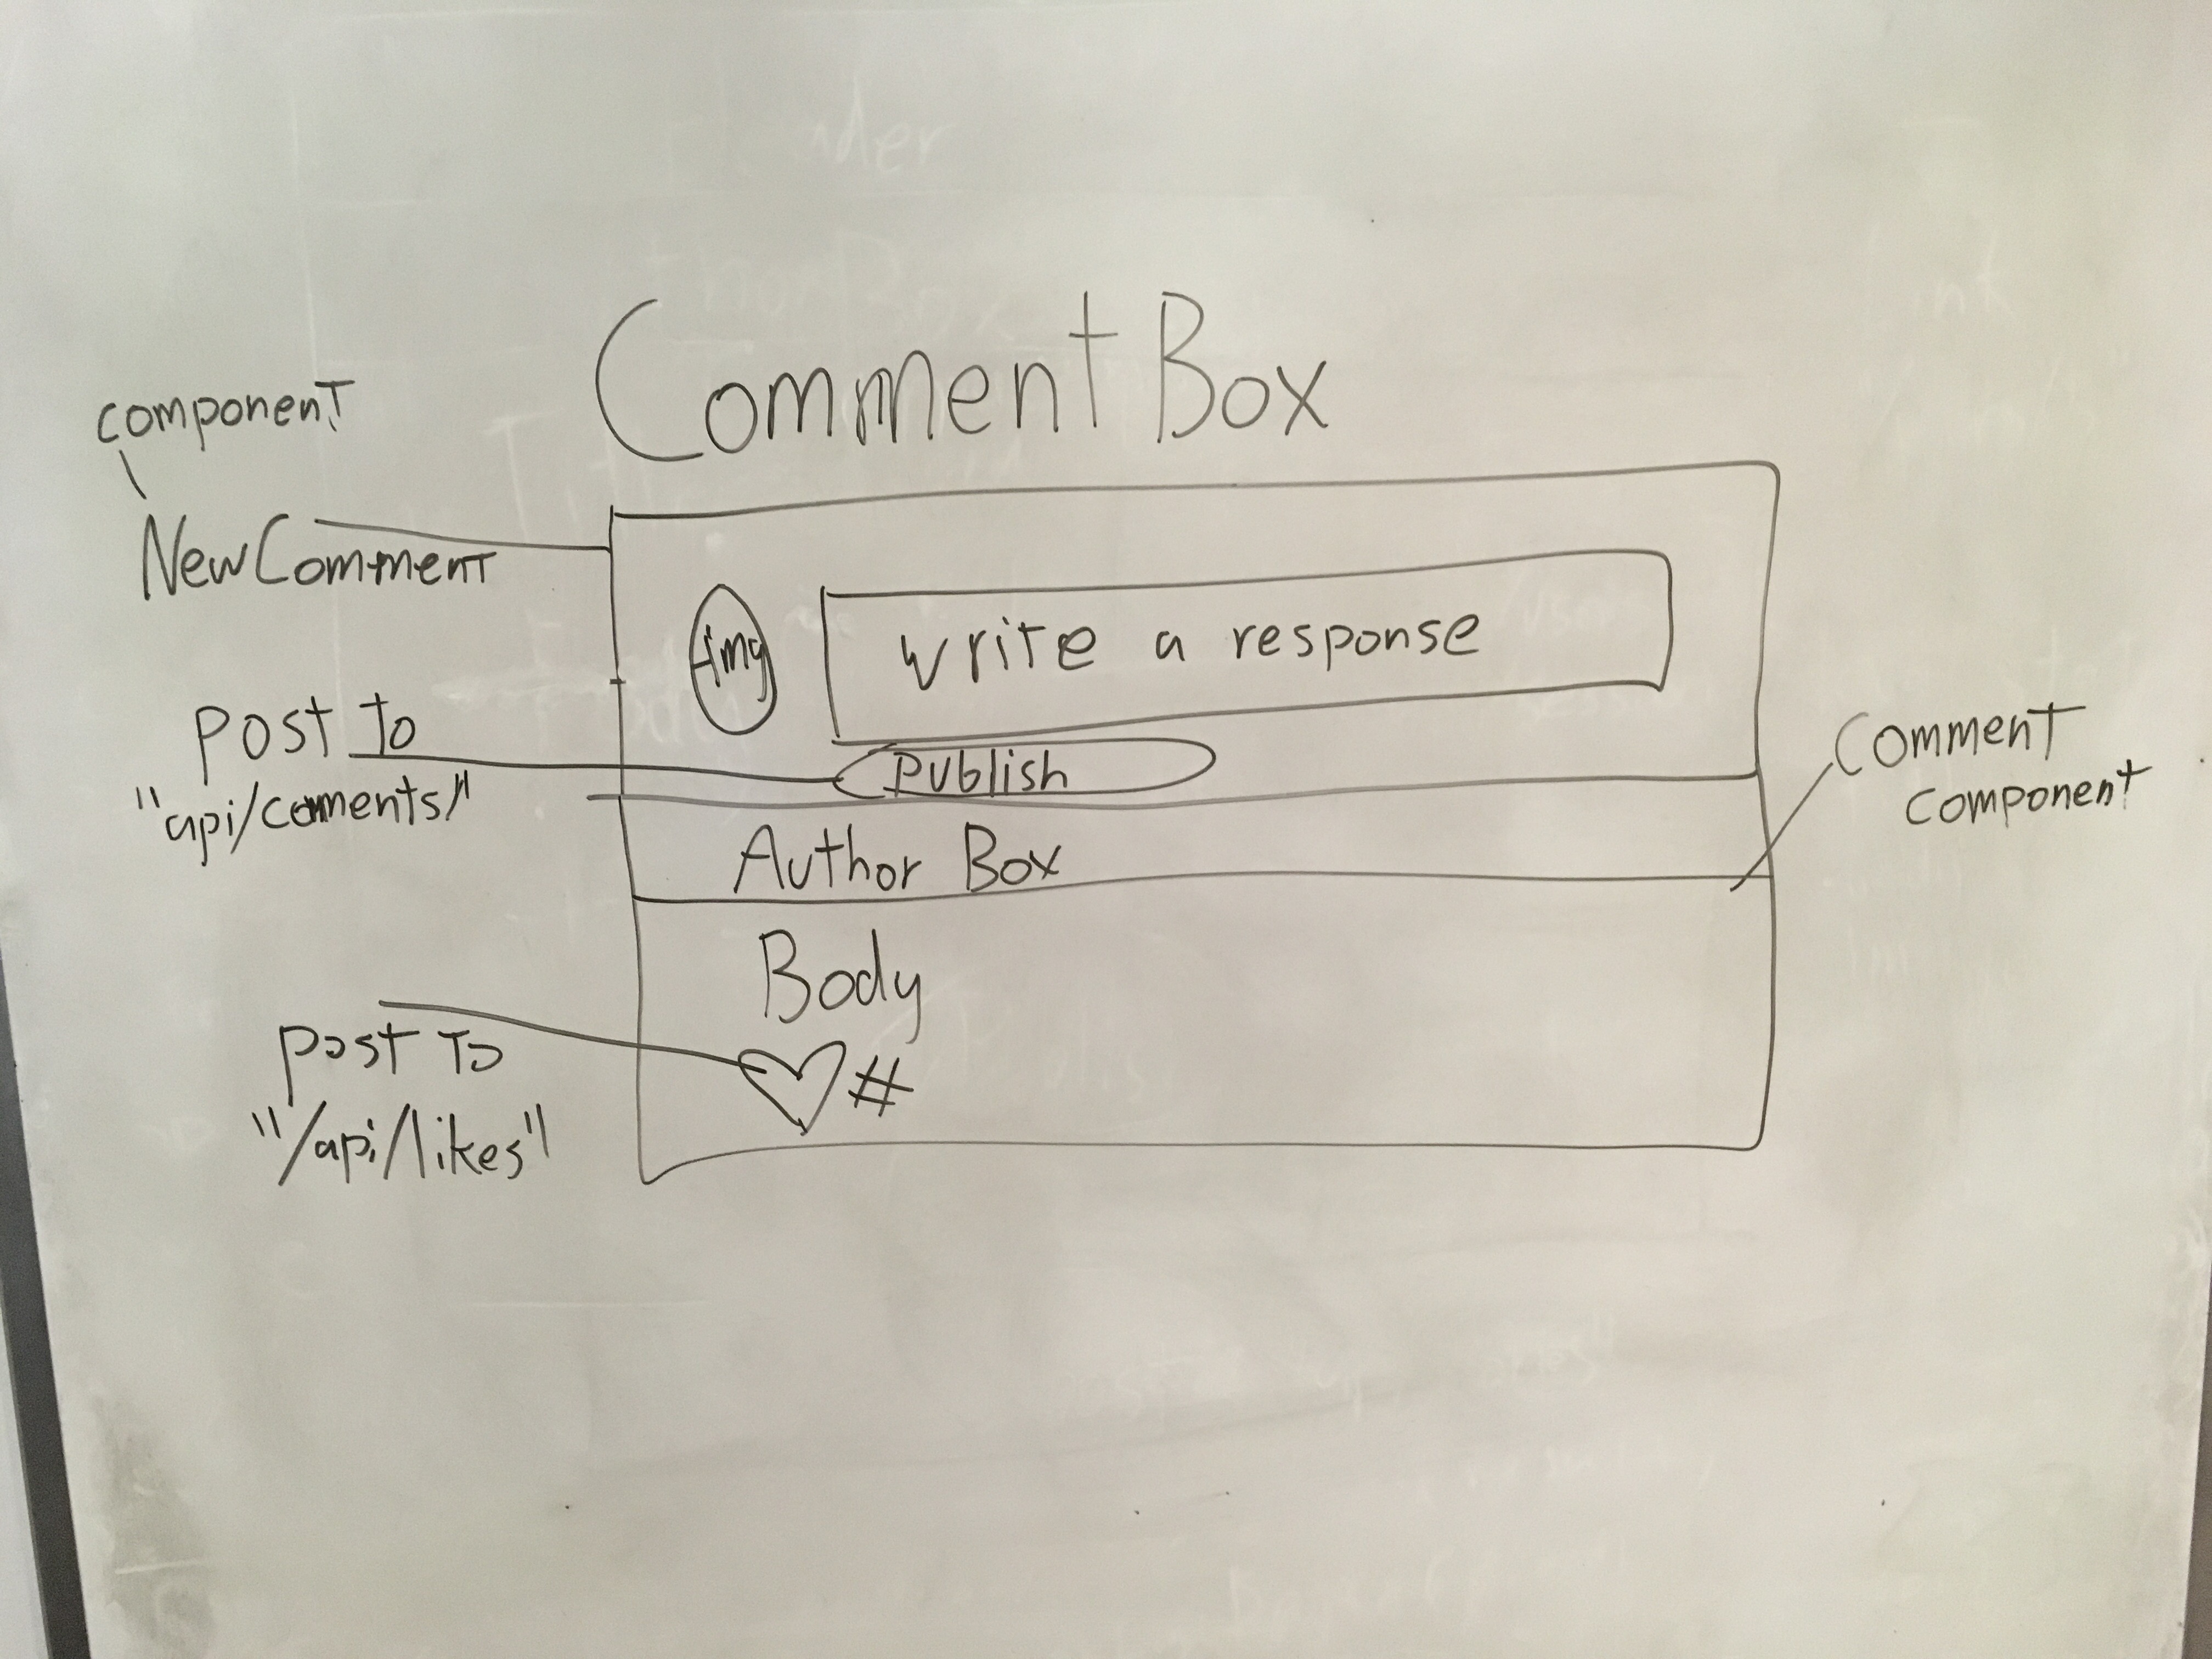 Comment Box
component
NewComment
img
write a response
Post to
"api/coments/"
Publish
Comment
component
Author Box
Body
post to
"/api/likes"
#